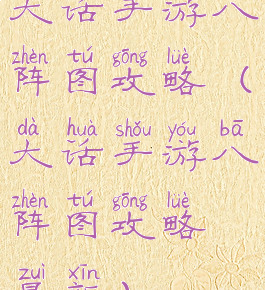 大话手游八
zhèn tú gōng lüè
阵图攻略（
dà huà shǒu yóu bā
大话手游八
zhèn tú gōng lüè
阵图攻略
zuì xīn
最新）